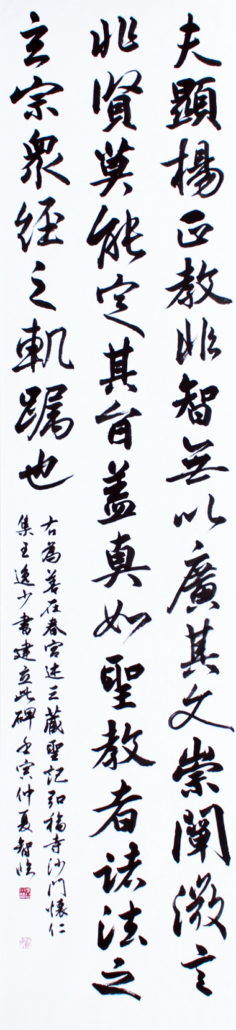 夫顯揚正教非智無以廣其文崇闡微言
非賢莫能定其旨蓋真如聖教者諸法之
玄宗眾經之軌躅也
右為菩在春宮述三藏聖記弘福寺沙門懷仁
集王逸少書建立此碑壬寅仲夏智臨